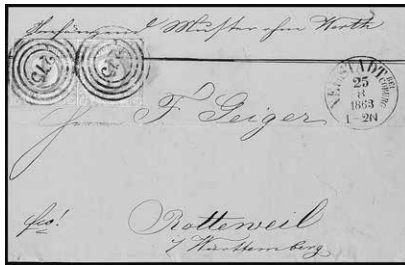 Anhängend Muster ohne Werth
215
215
NEUSTADT BEI COBURG
25
8
1863
1-2N
Herrn F. Geiger
fco!
Rottweil
i/ Württemberg